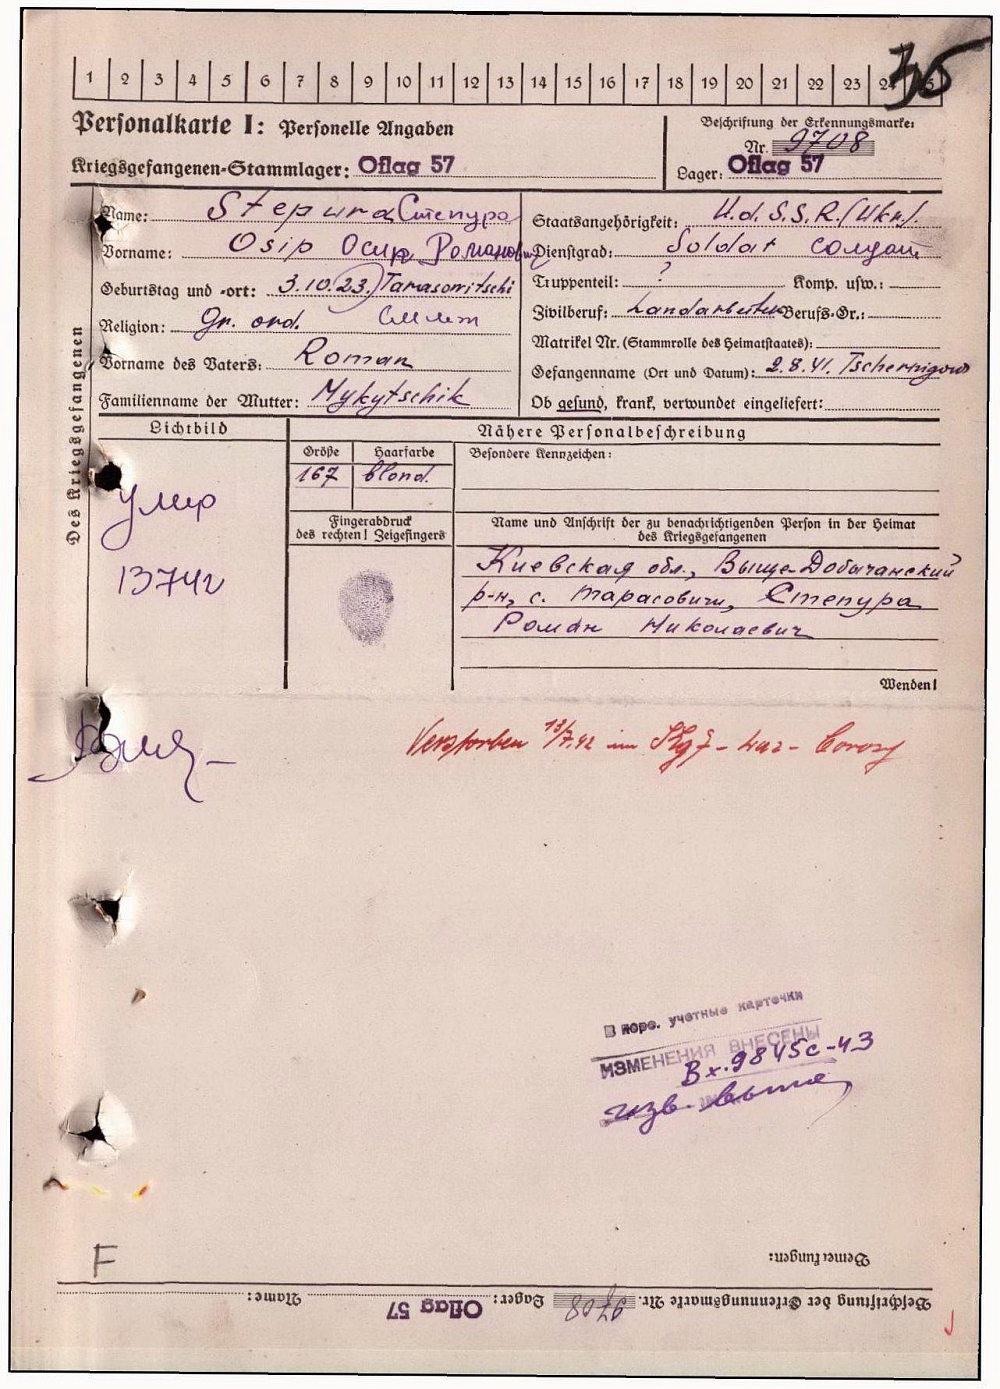 1 2 3 4 5 6 7 8 9 10 11 12 13 14 15 16 17 18 19 20 21 22 23 24 25
36
Personalkarte I: Personelle Angaben
Beschriftung der Erkennungsmarke:
Nr. 9708
Kriegsgefangenen-Stammlager: Oflag 57
Lager: Oflag 57
Des Kriegsgefangenen
Name: Stepura Степура
Staatsangehörigkeit: U.d.S.S.R. (Ukr.).
Vorname: Osip Осип Романович
Dienstgrad: Soldat солдат
Geburtstag und -ort: 3.10.23. Tarasowitschi
Truppenteil: ? Komp. usw.:
Religion: Gr. ord.
Zivilberuf: Landarbeiter Berufs-Gr.:
Vorname des Vaters: Roman
Matrikel Nr. (Stammrolle des Heimatstaates):
Familienname der Mutter: Mykytschik
Gefangenname (Ort und Datum): 2.8.41. Tschernigow
Ob gesund, krank, verwundet eingeliefert:
Lichtbild
Nähere Personalbeschreibung
Größe Haarfarbe
Besondere Kennzeichen:
167 blond.
умер
13742
Fingerabdruck
des rechten! Zeigefingers
Name und Anschrift der zu benachrichtigenden Person in der Heimat
des Kriegsgefangenen
Киевская обл., Выще-Добычанский
р-н, с. Тарасовичи, Степура
Роман Николаевич
Wenden!
Verstorben 13/7.42 im
В перс. учетные карточки
ИЗМЕНЕНИЯ ВНЕСЕНЫ
Вх. 9845с-43
изв. выше
F
Bemerkungen:
Beschriftung der Erkennungsmarke Nr. 9708 Lager: Oflag 57 Name: